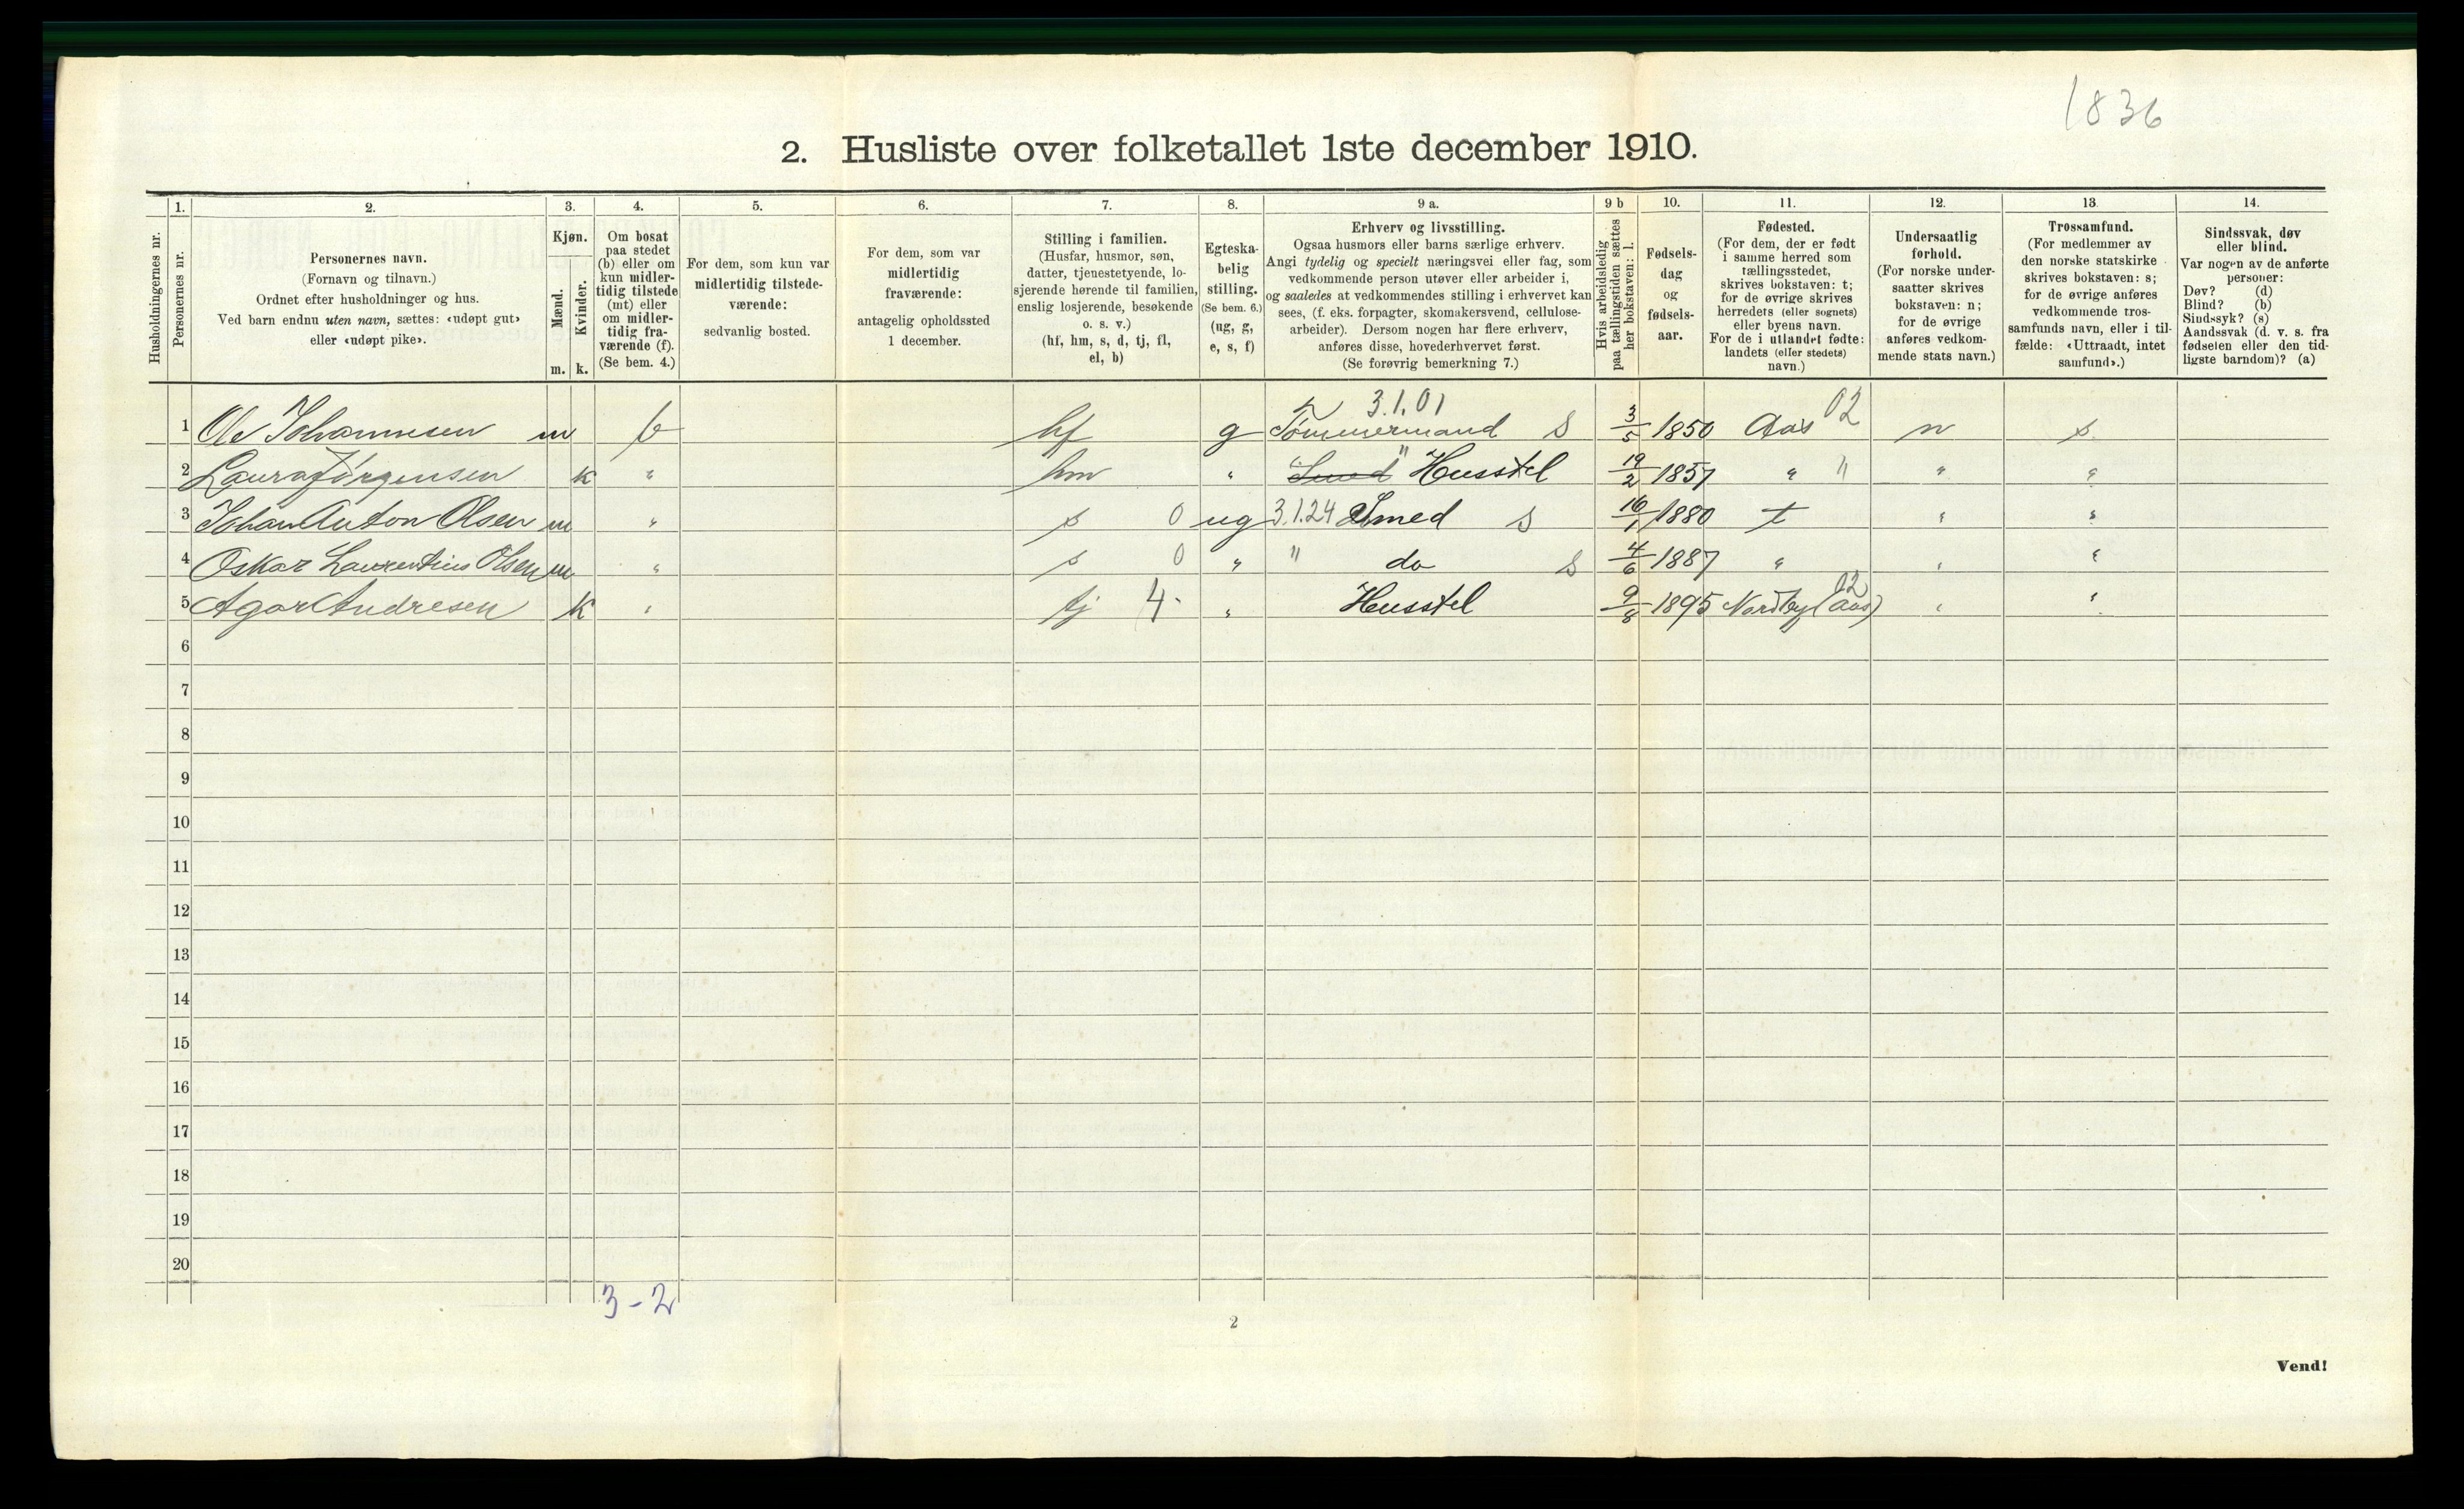 1836
2. Husliste over folketallet 1ste december 1910.
1. 2. 3. 4. 5. 6. 7. 8. 9 a. 9 b 10. 11. 12. 13 14.
Husholdningernes nr.
Personernes nr.
Personernes navn.
(Fornavn og tilnavn.)
Ordnet efter husholdninger og hus.
Ved barn endnu uten navn, sættes: «udøpt gut»
eller «udøpt pike».
Kjøn.
Mænd.
Kvinder.
m. k.
Om bosat
paa stedet
(b) eller om
kun midler-
tidig tilstede
(mt) eller
om midler-
tidig fra-
værende (f).
(Se bem. 4.)
For dem, som kun var
midlertidig tilstede-
værende:
sedvanlig bosted.
For dem, som var
midlertidig
fraværende:
antagelig opholdssted
1 december.
Stilling i familien.
(Husfar, husmor, søn,
datter, tjenestetyende, lo-
sjerende hørende til familien,
enslig losjerende, besøkende
o. s. v.)
(hf, hm, s, d, tj, fl,
el, b)
Egteska-
belig
stilling.
(Se bem. 6.)
(ug, g,
e, s, f)
Erhverv og livsstilling.
Ogsaa husmors eller barns særlige erhverv.
Angi tydelig og specielt næringsvei eller fag, som
vedkommende person utøver eller arbeider i,
og saaledes at vedkommendes stilling i erhvervet kan
sees, (f. eks. forpagter, skomakersvend, cellulose-
arbeider). Dersom nogen har flere erhverv,
anføres disse, hovederhvervet først.
(Se forøvrig bemerkning 7.)
Hvis arbeidsledig
paa tællingstiden sættes
her bokstaven: l.
Fødsels-
dag
og
fødsels-
aar.
Fødested.
(For dem, der er født
i samme herred som
tællingsstedet,
skrives bokstaven: t;
for de øvrige skrives
herredets (eller sognets)
eller byens navn.
For de i utlandet fødte:
landets (eller stedets)
navn.)
Undersaatlig
forhold.
(For norske under-
saatter skrives
bokstaven: n;
for de øvrige
anføres vedkom-
mende stats navn.)
Trossamfund.
(For medlemmer av
den norske statskirke
skrives bokstaven: s;
for de øvrige anføres
vedkommende tros-
samfunds navn, eller i til-
fælde: «Uttraadt, intet
samfund».)
Sindssvak, døv
eller blind.
Var nogen av de anførte
personer:
Døv? (d)
Blind? (b)
Sindssyk? (s)
Aandssvak (d. v. s. fra
fødselen eller den tid-
ligste barndom)? (a)
3.1.01 02
1 Ole Johannesen m b hf g Tømmermand S 3/5 1850 Aas n s
2 Laura Jørgensen k " hm " Smed Husstel 19/2 1857 " " " "
3 Johan Anton Olsen m " s 0 ug 3.1.24 Smed S 16/1 1880 t " "
4 Oskar Laurentius Olsen m " s 0 " " do S 4/6 1887 " " "
02
5 Agar Andresen k " tj 4- " Husstel 9/8 1895 Nordby (Aas) " "
6
7
8
9
10
11
12
13
14
15
16
17
18
19
20
3-2
2
Vend!